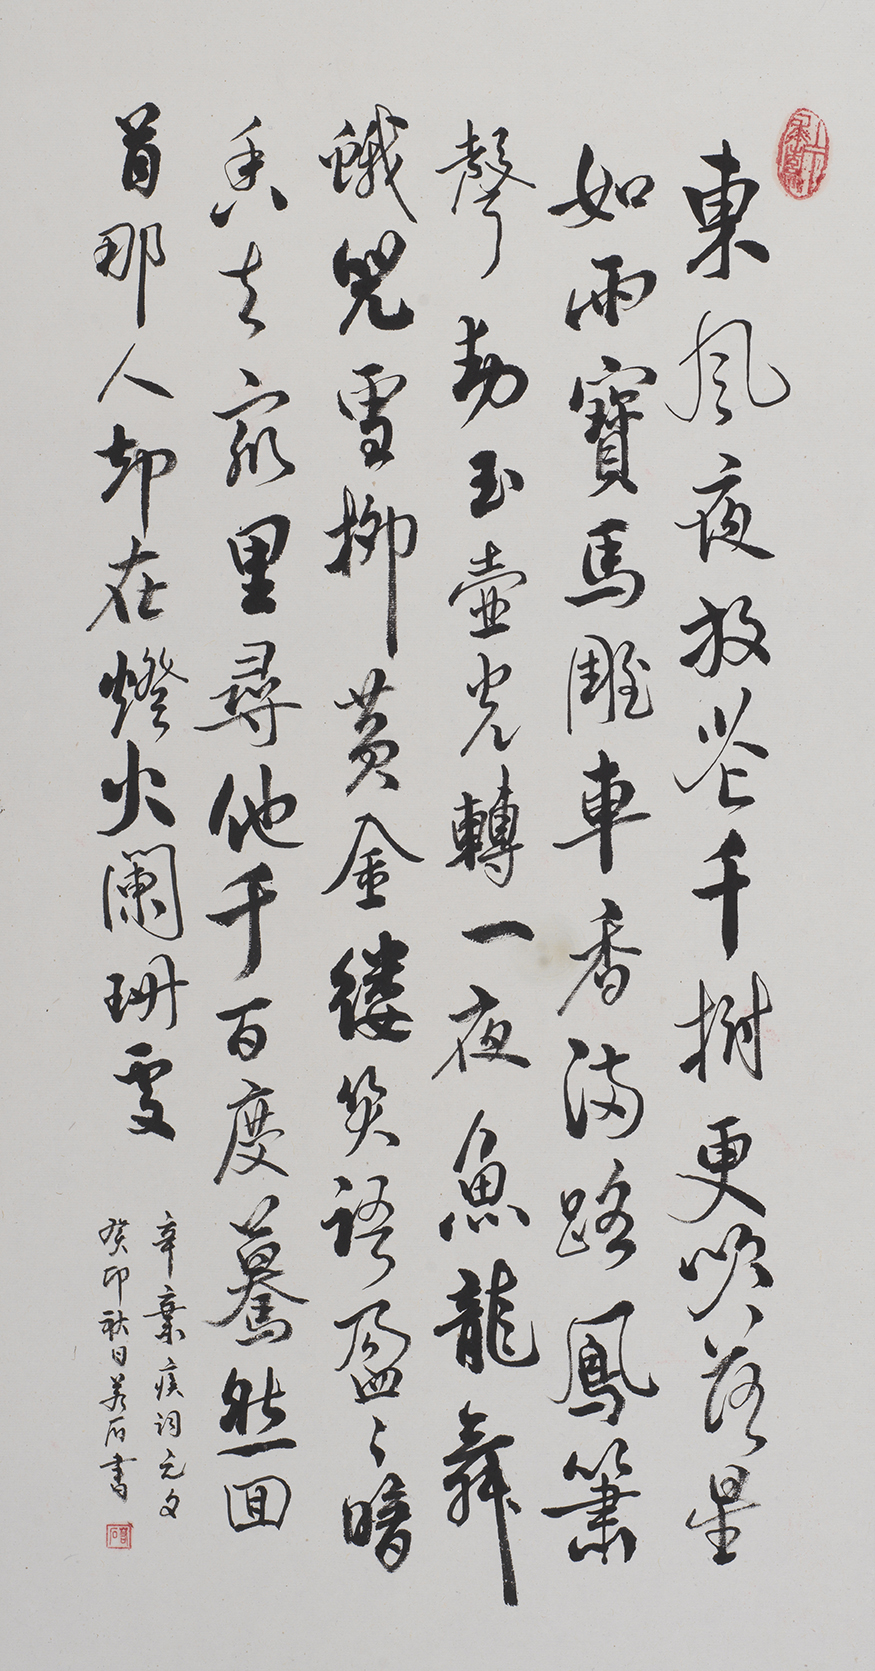 東風夜放花千樹更吹落星
如雨寶馬雕車香滿路鳳簫
聲動玉壺光轉一夜魚龍舞
蛾兒雪柳黃金縷笑語盈〻暗
香去眾里尋他千百度驀然回
首那人却在燈火闌珊處
辛棄疾詞元夕
癸卯秋日若石書